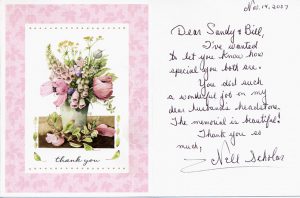 Nov. 14, 2007
Dear Sandy & Bill,
I've wanted
to let you know how
special you both are.
You did such
a wonderful job on my
dear husband's headstone.
The memorial is beautiful!
Thank you so
much,
Nell Scholar
thank you